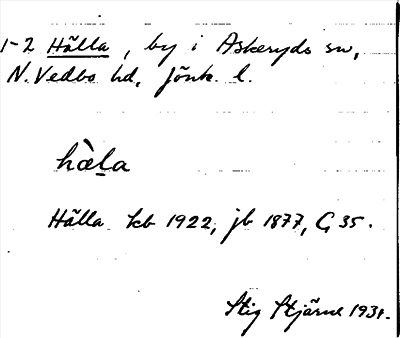 1-2 Hälla, by i Askeryds sn,
N. Vedbo hd, Jönk. l.
hæ̀l̠a
Hälla kb 1922, jb 1877, G 35.
Stig Stjärne 1931.